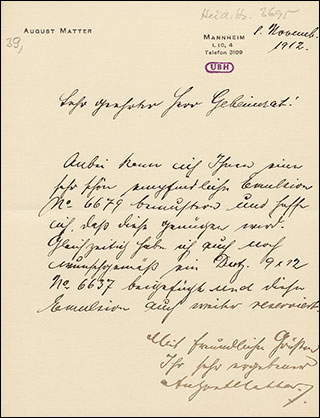 Heid. Hs. 3695
39,
AUGUST MATTER
MANNHEIM
L 10, 4
Telefon 3109
8. Novemb.
1912.
UBH
Sehr geehrter Herr Geheimrat!
Anbei kann ich Ihnen eine
sehr schön empfindliche Emulsion
No 6679 bemustern und hoffe
ich, daß diese genügen wird.
Gleichzeitig habe ich auch noch
wunschgemäß ein Dutz. 9x12
No 6637 beigefügt und diese
Emulsion auf weiter reserviert.
Mit freundlichen Grüssen
Ihr sehr ergebener
August Matter.